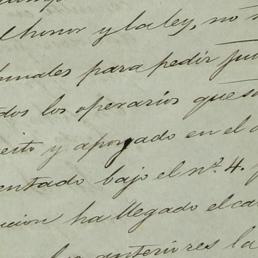 el honor y la ley, no
bunales para pedir
dos los operarios que
y apoyado en el
entado bajo el nº. 4.
cion ha llegado el ca
anteriores la